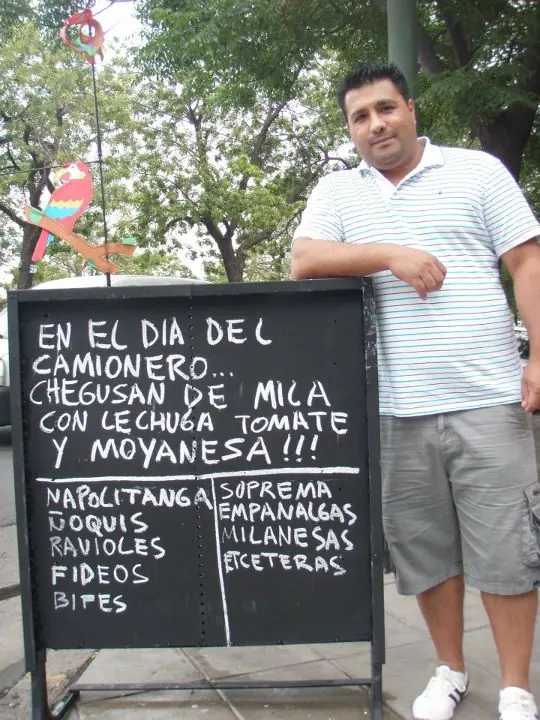 EN EL DIA DEL
CAMIONERO...
CHEGUSAN DE MILA
CON LECHUGA TOMATE
Y MOYANESA!!!
NAPOLITANGA
ÑOQUIS
RAVIOLES
FIDEOS
BIFES
SOPREMA
EMPANALGAS
MILANESAS
ETCETERAS